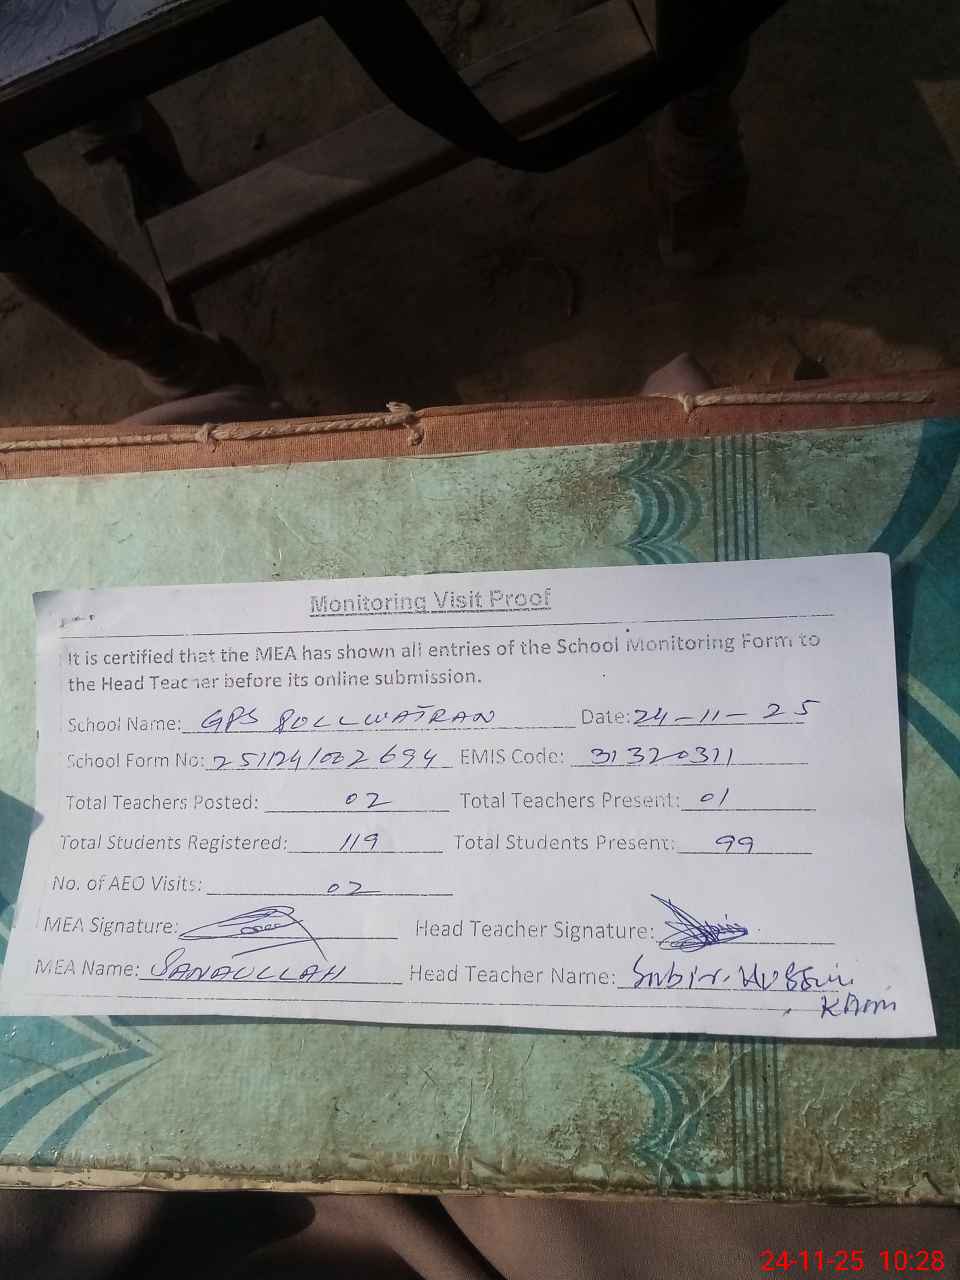 Monitoring Visit Proof
It is certified that the MEA has shown all entries of the School Monitoring Form to
the Head Teacher before its online submission.
School Name: GPS Date: 24-11-25
School Form No: EMIS Code: 31320311
Total Teachers Posted: 02 Total Teachers Present: 01
Total Students Registered: 119 Total Students Present: 99
No. of AEO Visits: 02
MEA Signature: Head Teacher Signature:
MEA Name: SANAULLAH Head Teacher Name:
24-11-25 10:28